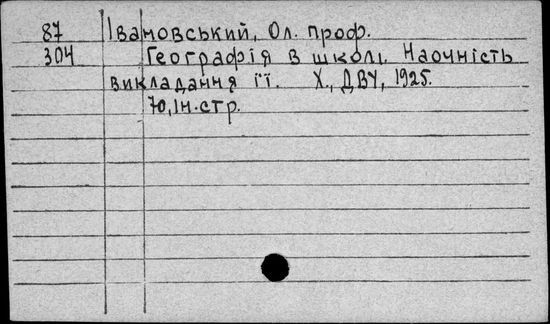 87 Івановський, Ол. проф.
304 Географія в школі. Наочність
викладання її. Х., ДВУ, 1925.
70, ІН. стр.